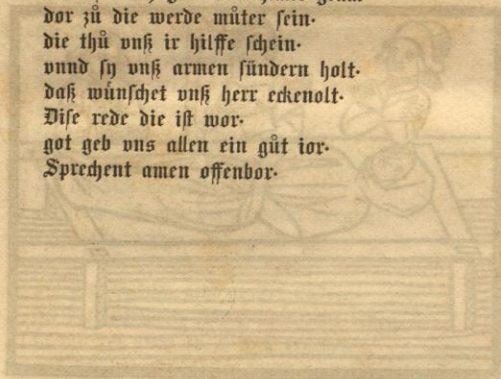 dor zů die werde můter sein·
die thů vnß ir hilffe schein·
vnnd sy vnß armen sündern holt·
daß wúnschet vnß herr eckenolt·
Dise rede die ist wor·
got geb vns allen ein gůt ior·
Sprechent amen offenbor·